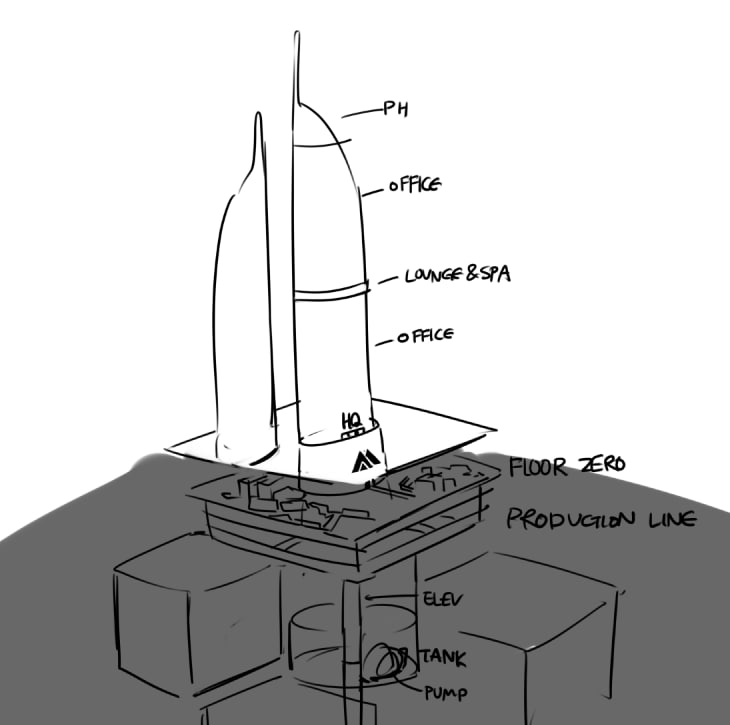 PH
OFFICE
LOUNGE & SPA
OFFICE
HQ
FLOOR ZERO
PRODUCTION LINE
ELEV
TANK
PUMP